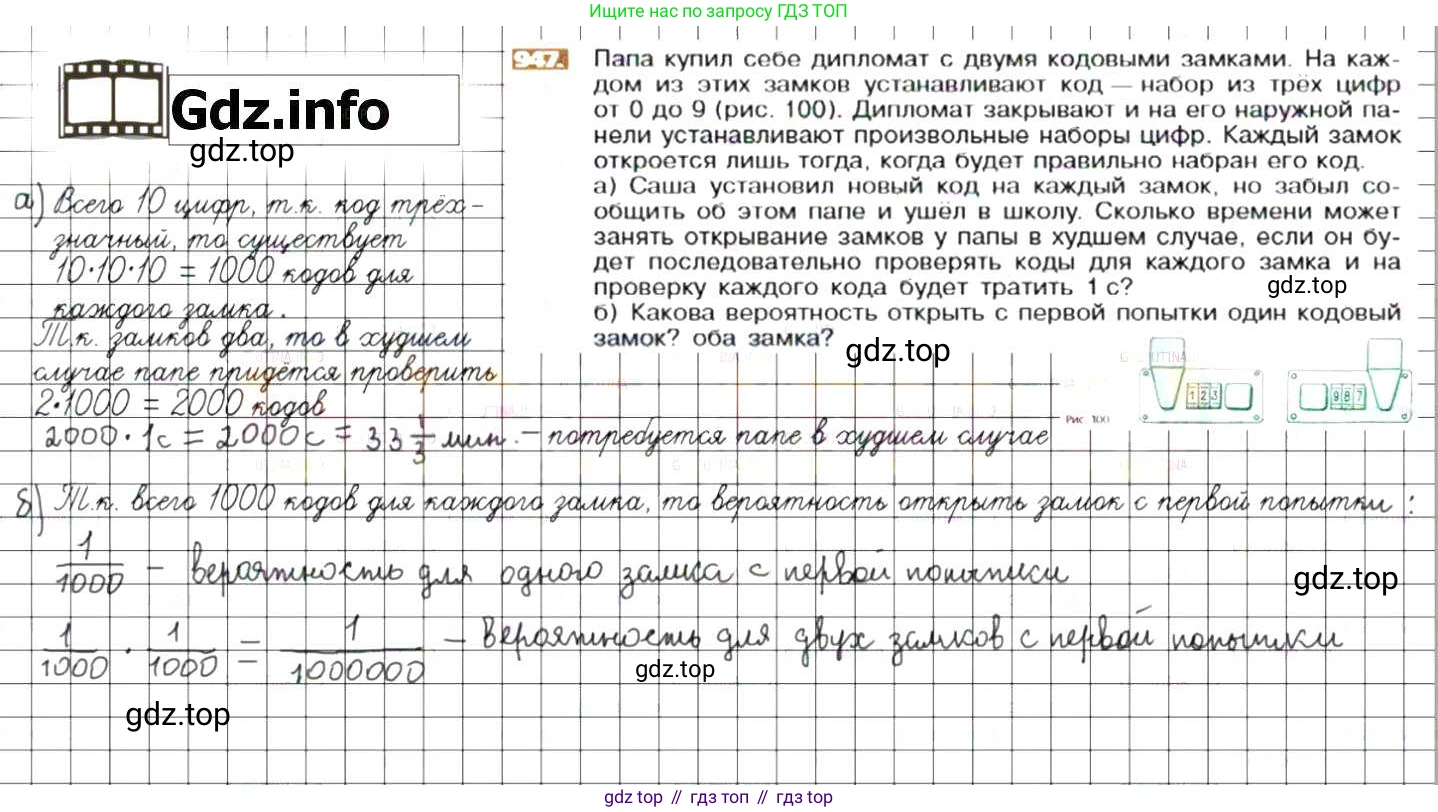 Ищите нас по запросу ГДЗ ТОП
947.
Папа купил себе дипломат с двумя кодовыми замками. На каж-
дом из этих замков устанавливают код — набор из трёх цифр
от 0 до 9 (рис. 100). Дипломат закрывают и на его наружной па-
нели устанавливают произвольные наборы цифр. Каждый замок
откроется лишь тогда, когда будет правильно набран его код.
а) Саша установил новый код на каждый замок, но забыл со-
общить об этом папе и ушёл в школу. Сколько времени может
занять открывание замков у папы в худшем случае, если он бу-
дет последовательно проверять коды для каждого замка и на
проверку каждого кода будет тратить 1 с?
б) Какова вероятность открыть с первой попытки один кодовый
замок? оба замка?
Gdz.info
gdz.top
gdz.top
gdz.top
1 2 3
9 8 7
Рис 100
а) Всего 10 цифр, т.к. код трёх-
значный, то существует
10·10·10 = 1000 кодов для
каждого замка.
Т.к. замков два, то в худшем
случае папе придётся проверить
2·1000 = 2000 кодов
2000 · 1с = 2000 с = 33 1/3 мин. – потребуется папе в худшем случае
б) Т.к. всего 1000 кодов для каждого замка, то вероятность открыть замок с первой попытки :
1/1000 – вероятность для одного замка с первой попытки
gdz.top
1/1000 · 1/1000 = 1/1000000 – вероятность для двух замков с первой попытки
gdz.top
gdz.top
gdz top // гдз топ // гдз top